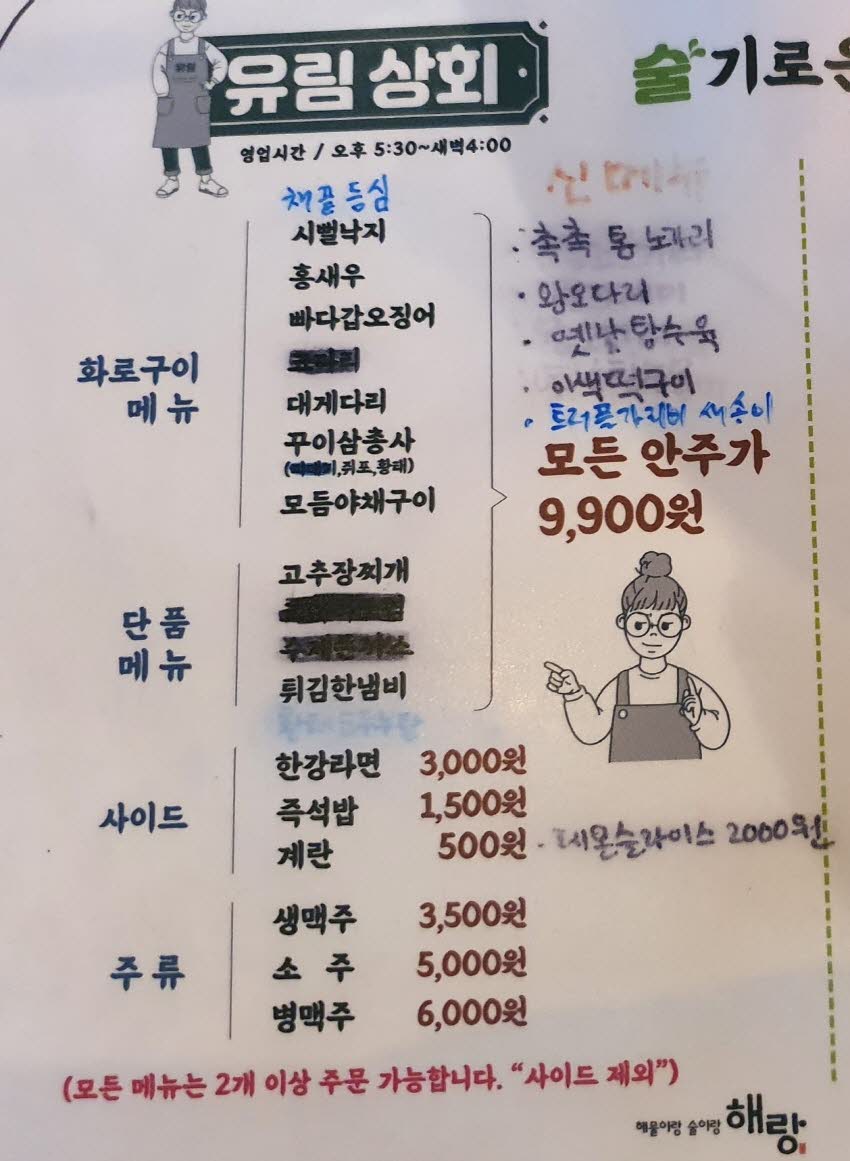 유림
유림 상회
술기로운
영업시간 / 오후 5:30~새벽4:00
채끝등심
시뻘낙지
홍새우
빠다갑오징어
화로구이
메 뉴
대게다리
꾸이삼총사
(쥐포,황태)
모듬야채구이
신 메뉴
· 촉촉 통 노가리
· 왕오다리
· 옛날탕수육
· 이색떡구이
· 트러플가리비 새송이
모든 안주가
9,900원
단 품
메 뉴
고추장찌개
튀김한냄비
사이드
한강라면 3,000원
즉석밥 1,500원
계란 500원 · 레몬슬라이스 2000원
주 류
생맥주 3,500원
소 주 5,000원
병맥주 6,000원
(모든 메뉴는 2개 이상 주문 가능합니다. “사이드 제외”)
해물이랑 술이랑 해랑